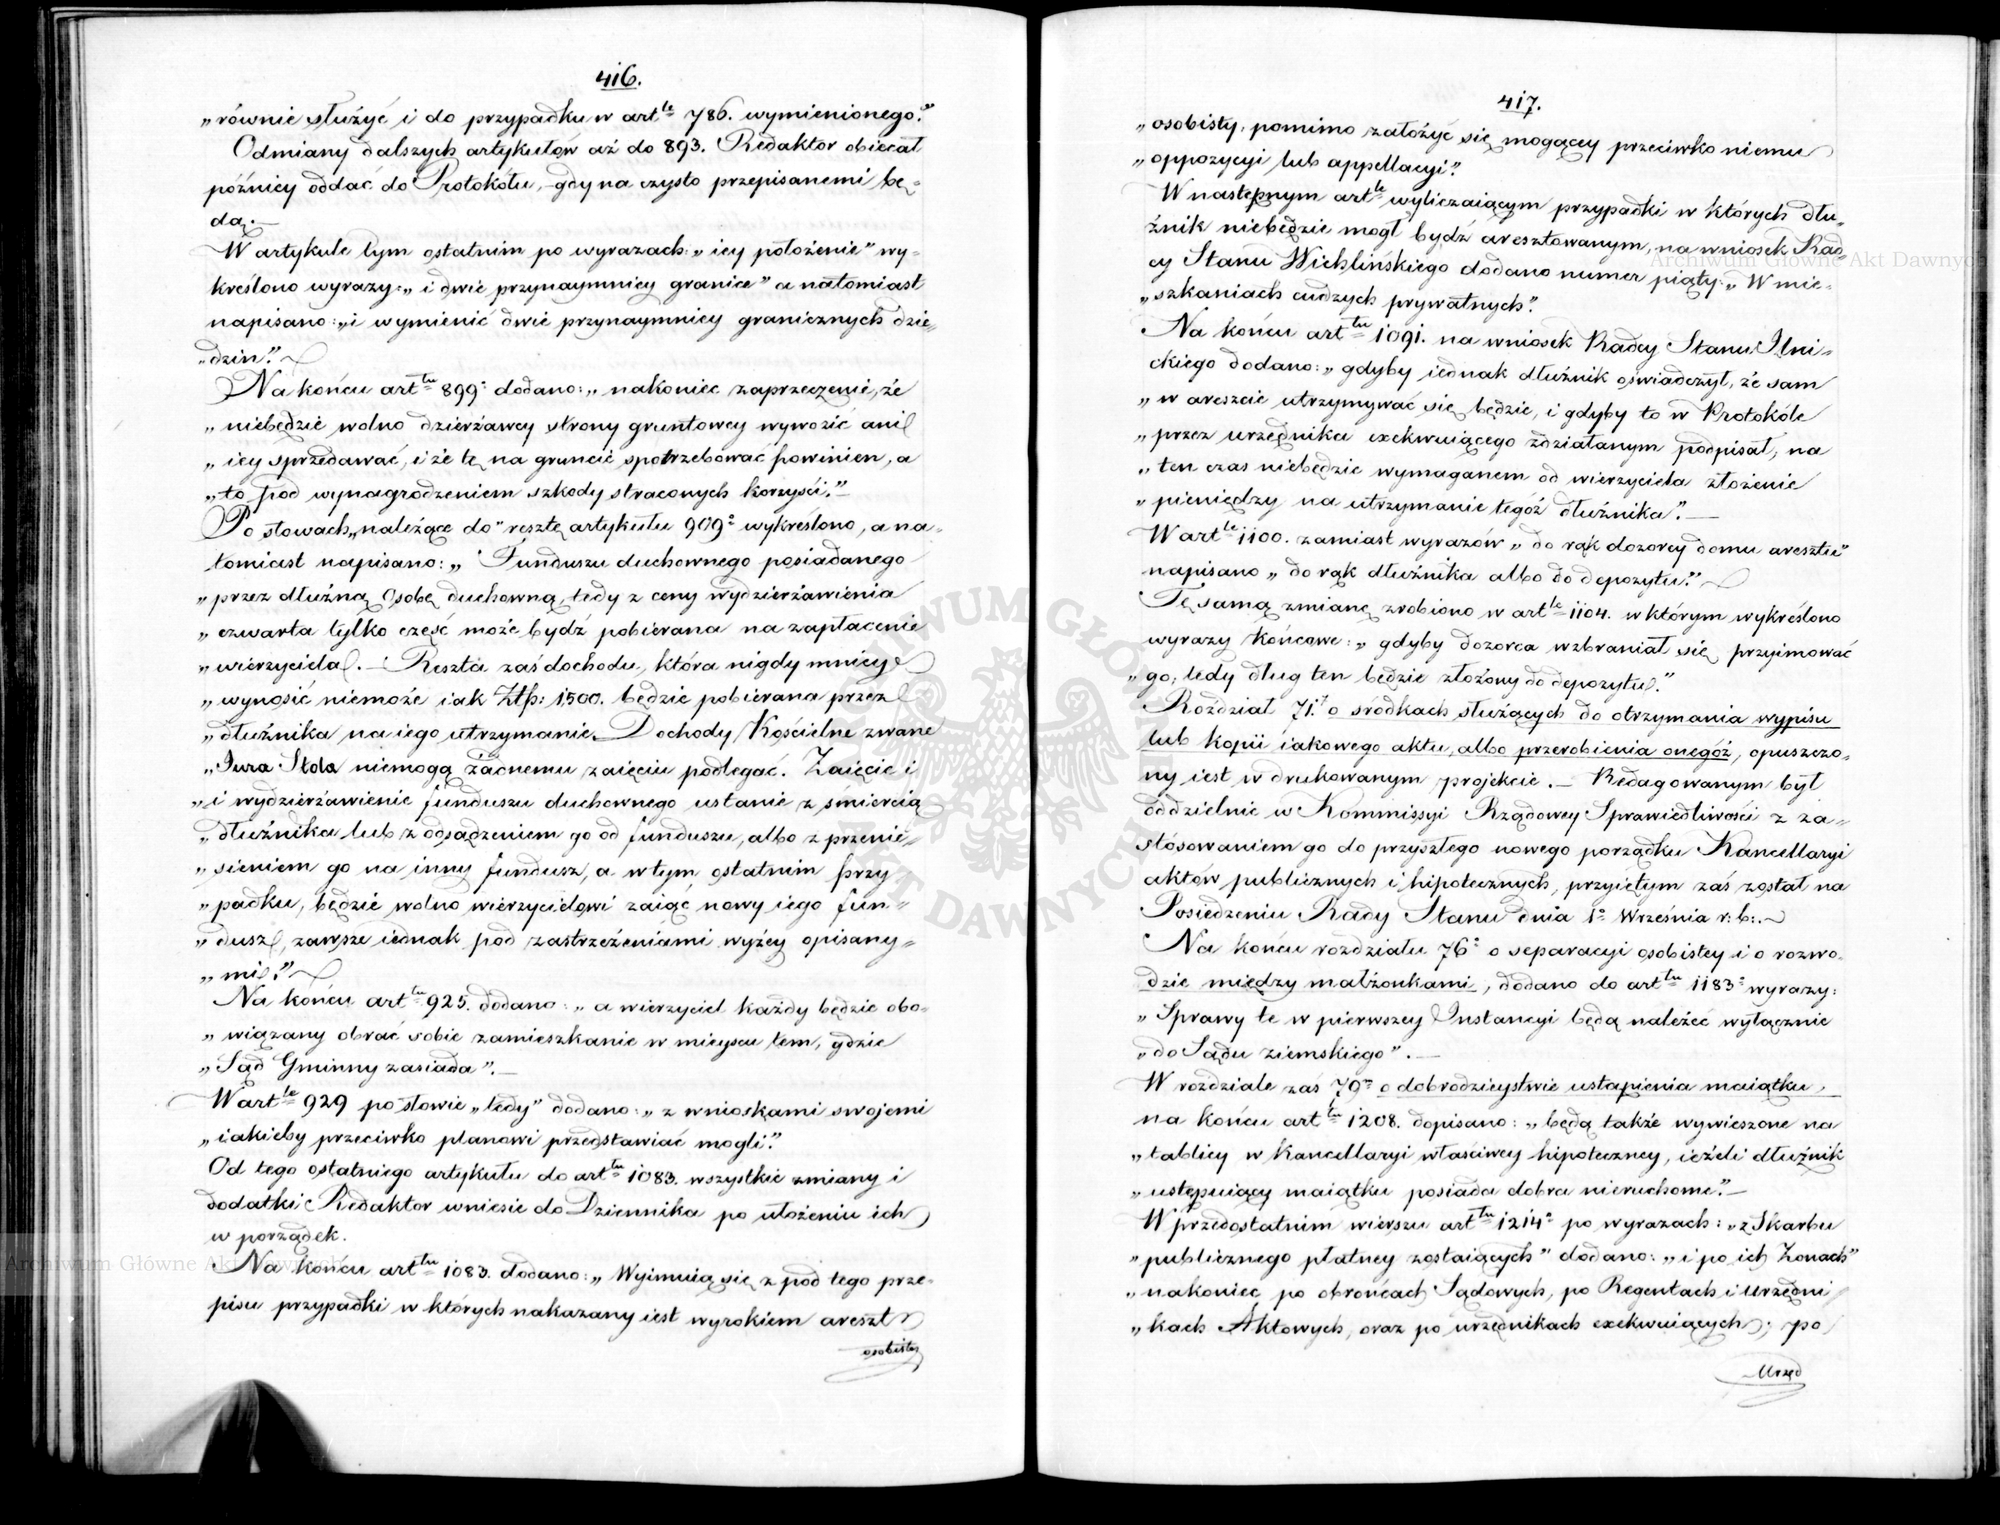 416.
„równie służyć i do przypadku w art^le 786. wymienionego."
Odmiany dalszych artykułów aż do 893. Redaktor obiecał
późniey oddać do Protokółu, gdy na czysto przepisanemi bę-
dą.—
W artykule tym ostatnim po wyrazach: „iey położenie" wy-
kreślono wyrazy: „i dwie przynaymniey granice" a natomiast
napisano: „i wymienić dwie przynaymniey granicznych dzie-
„dzin."
Na końcu art^łu 899° dodano: „nakoniec zaprzeczenie, że
„niebędzie wolno dzierżawcy słomy gruntowey wywozić ani
„iey sprzedawać, i że tę na gruncie spotrzebować powinien, a
„to pod wynagrodzeniem szkody straconych korzyści."—
Po słowach „należące do" resztę artykułu 909° wykreślono, a na-
tomiast napisano: „Funduszu duchownego posiadanego
„przez dłużną osobę duchowną, tedy z ceny wydzierżawienia
„czwarta tylko część może bydź pobierana na zapłacenie
„wierzyciela. — Reszta zaś dochodu, która nigdy mniey
„wynosić niemoże iak Złp: 1,500. będzie pobierana przez
„dłużnika na iego utrzymanie. Dochody Kościelne zwane
„Jura Stola niemogą żadnemu zaięciu podlegać. Zaięcie i
„i wydzierżawienie funduszu duchownego ustanie z śmiercią
„dłużnika lub z odsądzeniem go od funduszu, albo z przenie-
„sieniem go na inny fundusz, a w tym ostatnim przy-
„padku, będzie wolno wierzycielowi zaiąć nowy iego fun-
„dusz, zawsze iednak pod zastrzeżeniami wyżey opisany-
„mi."
Na końcu art^łu 925. dodano: „a wierzyciel każdy będzie obo-
„wiązany obrać sobie zamieszkanie w mieyscu tem, gdzie
„Sąd Gminny zasiada".—
W art^le 929 po słowie „tedy" dodano: „z wnioskami swojemi
„iakieby przeciwko planowi przedstawiać mogli."
Od tego ostatniego artykułu do art^łu 1083. wszystkie zmiany i
dodatki Redaktor wniesie do Dziennika po ułożeniu ich
w porządek.
Na końcu art^łu 1083. dodano: „Wyimuią się z pod tego prze-
pisu przypadki w których nakazany iest wyrokiem areszt
osobisty
417.
„osobisty, pomimo założyć się mogącey przeciwko niemu
„oppozycyi lub appellacyi."
W następnym art^le wyliczaiącym przypadki w których dłu-
żnik niebędzie mogł bydź aresztowanym, na wniosek Rad-
cy Stanu Wichlińskiego dodano numer piąty: „W mie-
„szkaniach cudzych prywatnych."
Na końcu art^łu 1091. na wniosek Radcy Stanu Ilni-
ckiego dodano: „gdyby iednak dłużnik oświadczył, że sam
„w areszcie utrzymywać się będzie, i gdyby to w Protokóle
„przez urzędnika exekwuiącego zdziałanym podpisał, na
„ten czas niebędzie wymaganem od wierzyciela złożenie
„pieniędzy na utrzymanie tegóż dłużnika".—
W art^le 1100. zamiast wyrazów „do rąk dozorcy domu aresztu"
napisano „do rąk dłużnika albo do depozytu."
Tę samą zmianę zrobiono w art^le 1104. w którym wykreślono
wyrazy końcowe: „gdyby dozorca wzbraniał się przyimować
„go, tedy dług ten będzie złożony do depozytu."
Rozdział 71.^y o śródkach służących do otrzymania wypisu
lub kopii iakowego aktu, albo przerobienia onegóż, opuszczo-
ny iest w drukowanym projekcie. — Redagowanym był
oddzielnie w Kommissyi Rządowey Sprawiedliwości z za-
stósowaniem go do przyszłego nowego porządku Kancellaryi
aktów publicznych i hipotecznych, przyiętym zaś został na
Posiedzeniu Rady Stanu dnia 1° Września r: b:.
Na końcu rozdziału 76° o separacyi osobistey i o rozwo-
dzie między małżonkami, dodano do art^łu 1183° wyrazy:
„Sprawy te w pierwszey Instancyi będą należeć wyłącznie
„do Sądu ziemskiego".—
W rozdziale zaś 79^m o dobrodzieystwie ustąpienia maiątku,
na końcu art^łu 1208. dopisano: „będą także wywieszone na
„tablicy w Kancellaryi właściwey hipoteczney, ieżeli dłużnik
„ustępuiący maiątku posiada dobra nieruchome."—
W przedostatnim wierszu art^łu 1214° po wyrazach: „z Skarbu
„publicznego płatney zostaiących" dodano: „i po ich Żonach"
„nakoniec po obrońcach Sądowych, po Regentach i Urzędni
„kach Aktowych, oraz po urzędnikach exekwuiących; po
Urzęd
Archiwum Główne Akt Dawnych
Archiwum Główne Akt Dawnych
ARCHIWUM GŁÓWNE AKT DAWNYCH